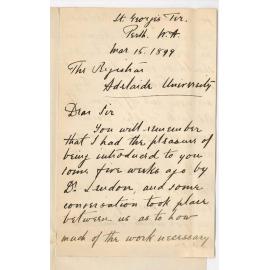 St. George's Ter.
Perth. W.A
Mar 15. 1899
The Registrar
Adelaide University
Dear Sir
You will remember
that I had the pleasure of
being introduced to you
some five weeks ago by
Dr. Lendon, and some
conversation took place
between us as to how
much of the work necessary